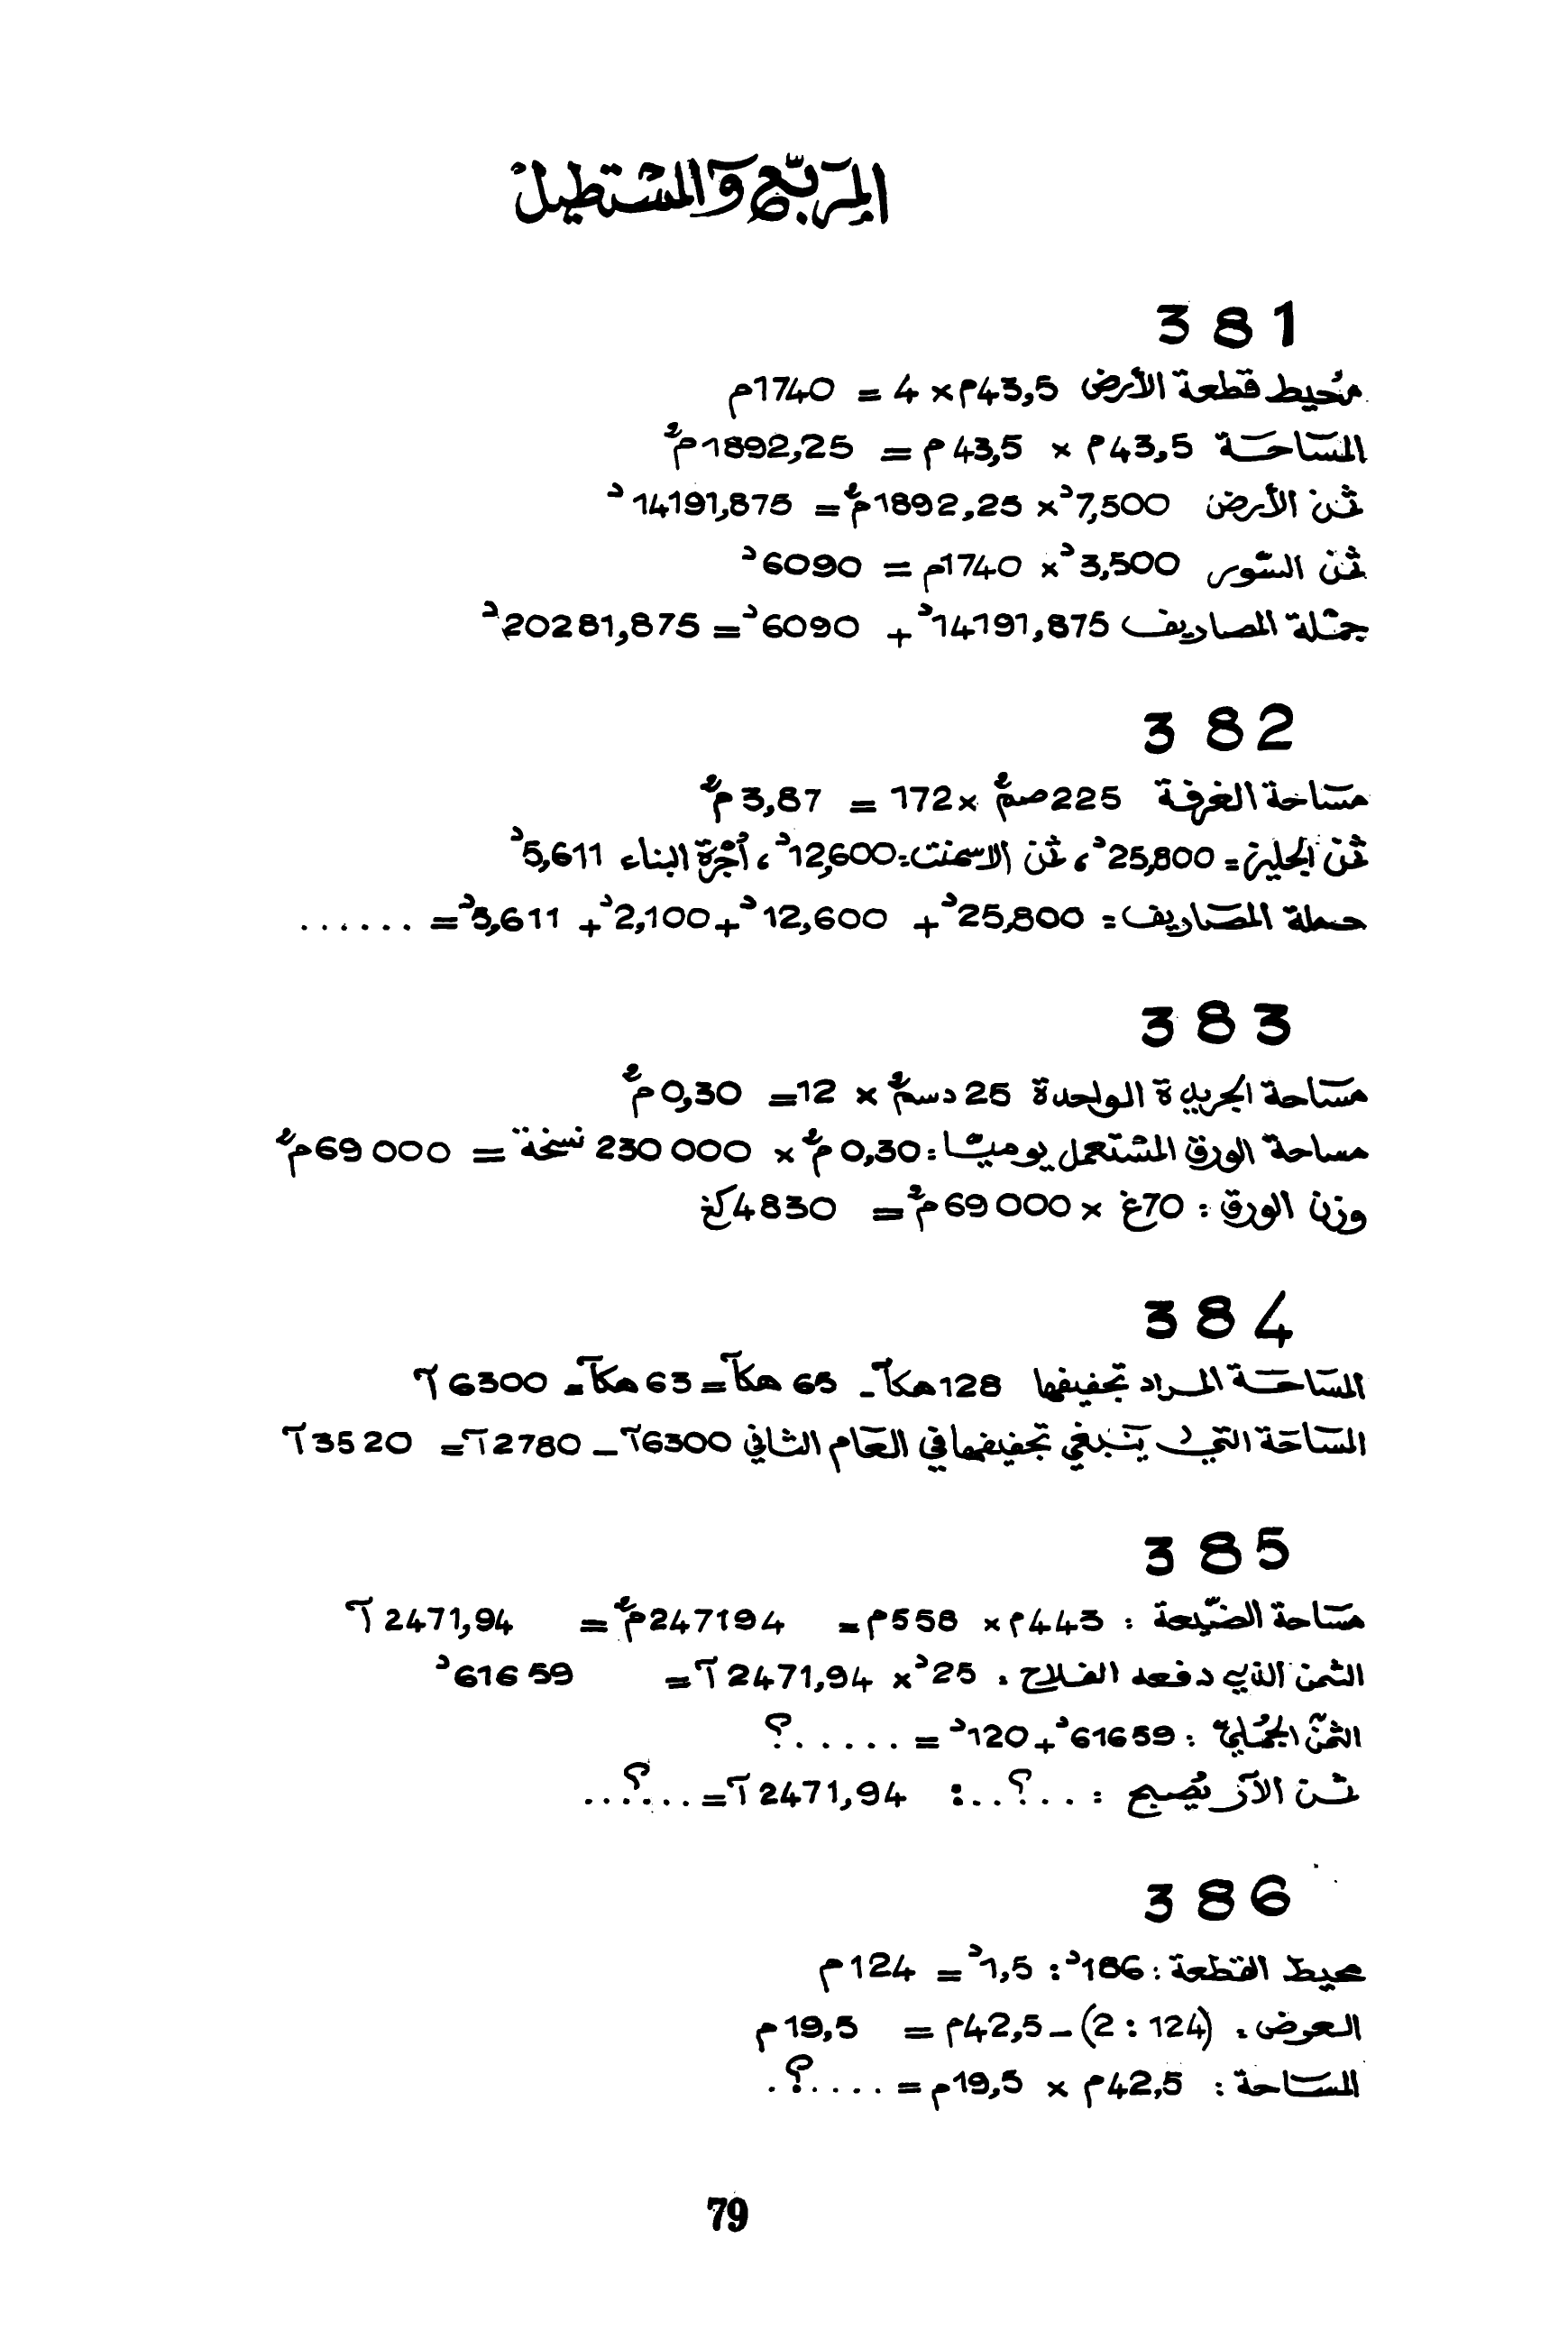 المربّع والمستطيل
381
محيط قطعة الأرض 43,5م × 4 = 1740م
المساحة 43,5م × 43,5م = 1892,25م²
ثمن الأرض 7,500د × 1892,25م² = 14191,875د
ثمن السّور 3,500د × 1740م = 6090د
جملة المصاريف 14191,875د + 6090د = 20281,875د
382
مساحة الغرفة 225صم² × 172 = 3,87م²
ثمن الجليز = 25,800د، ثمن الاسمنت: 12,600د، أجرة البناء 5,611د
جملة المصاريف = 25,800د + 12,600د + 2,100د + 5,611د = ......
383
مساحة الجريدة الواحدة 25دسم² × 12 = 0,30م²
مساحة الورق المستعمل يوميّا: 0,30م² × 230 000 نسخة = 69 000م²
وزن الورق: 70غ × 69 000م² = 4830كغ
384
المساحة المراد تجفيفها 128هكآ - 65 هكآ = 63هكآ = 6300 آ
المساحة التي ينبغي تجفيفها في العام الثاني 6300آ - 2780آ = 3520آ
385
مساحة الضّيعة: 443م × 558م = 247194م² = 2471,94 آ
الثمن الذي دفعه الفلاح: 25د × 2471,94آ = 61659د
الثمن الجملي: 61659د + 120د = ......؟
ثمن الآر يصبح: ..؟..: 2471,94آ = ...؟...
386
محيط القطعة: 186د : 1,5د = 124م
العرض: (124 : 2) - 42,5م = 19,5م
المساحة: 42,5م × 19,5م = ....؟.
79